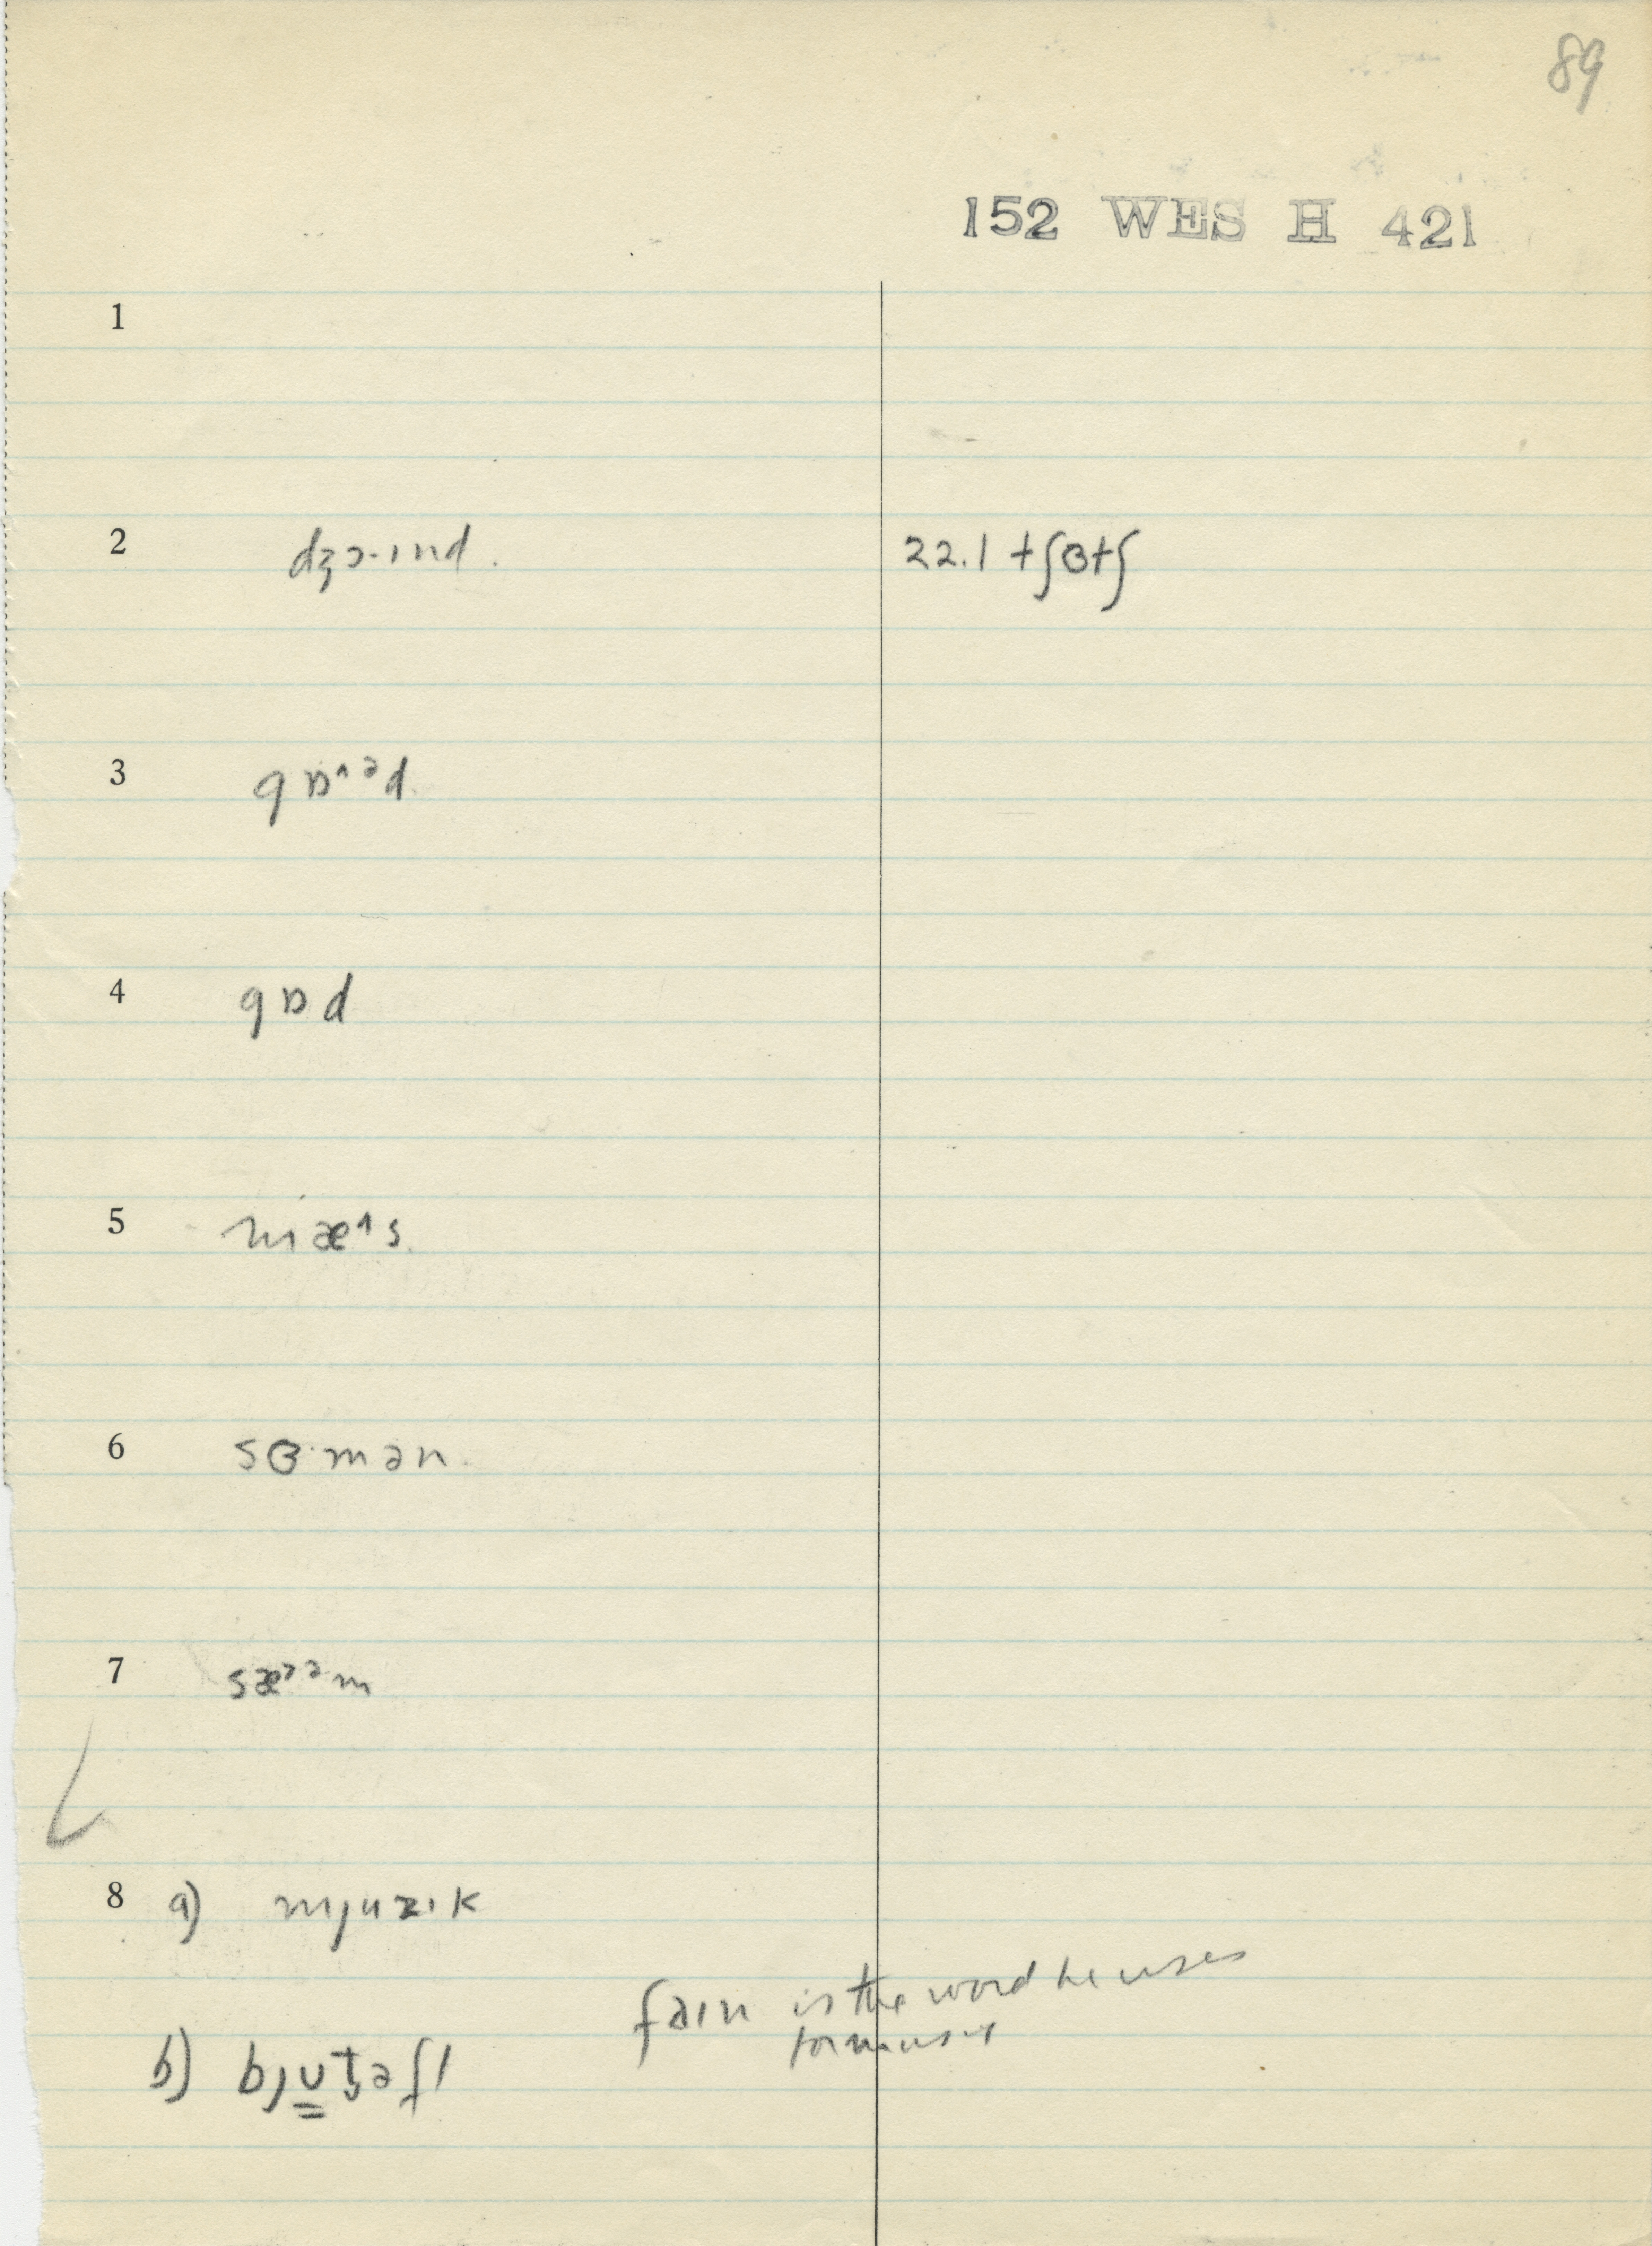 89
152 WES H 421
1
2 dʒɔ·ɪnd. 22.1 tʃɵtʃ
3 gɒ˄ᵊd.
4 gɒd
5 mæ˄s.
6 sɵ·mən.
7 sæ˒ᵊm
8 a) mjuzɪk
fain is the word he uses
b) bju̳t̬əfl